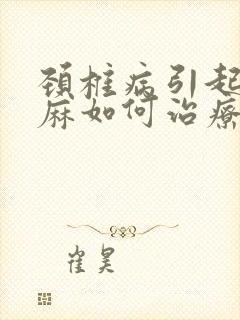 颈椎病引起
麻如何治疗
崔昊